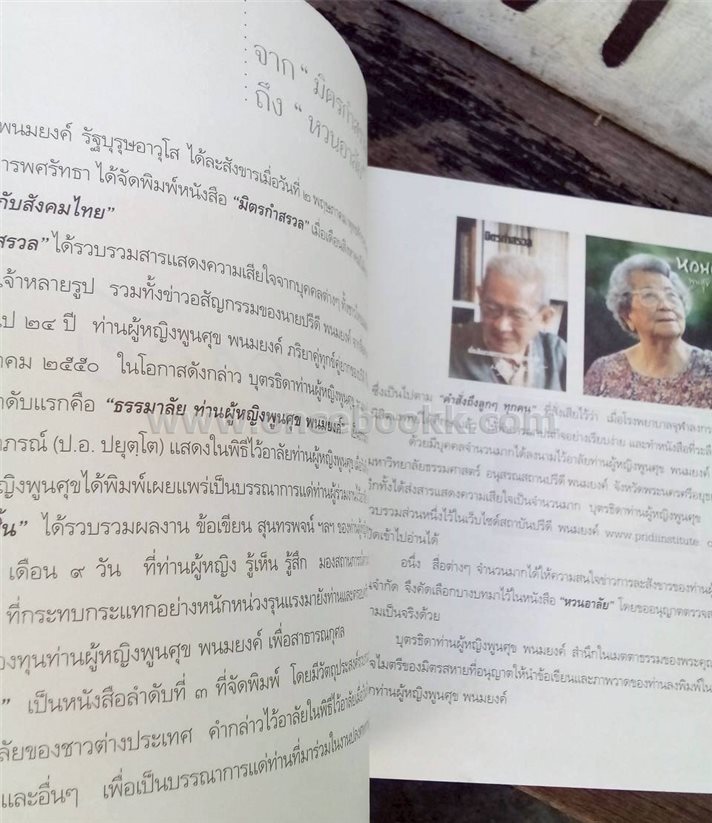 จาก “ มิตรกำสรวล
ถึง “ หวนอาลัย
พนมยงค์ รัฐบุรุษอาวุโส ได้ละสังขารเมื่อวันที่ ๒ พฤษภาคม
ได้จัดพิมพ์หนังสือ “มิตรกำสรวล” เมื่อเดือน
กับสังคมไทย”
สรวล” ได้รวบรวมสารแสดงความเสียใจจากบุคคลต่างๆ
เจ้าหลายรูป รวมทั้งข่าวอสัญกรรมของนายปรีดี พนมยงค์
ไป ๒๔ ปี ท่านผู้หญิงพูนศุข พนมยงค์ ภริยาคู่ทุกข์คู่ยาก
าคม ๒๕๕๐ ในโอกาสดังกล่าว บุตรธิดาท่านผู้หญิงพูนศุข
ำดับแรกคือ “ธรรมาลัย ท่านผู้หญิงพูนศุข พนมยงค์”
าภรณ์ (ป.อ. ปยุตฺโต) แสดงในพิธีไว้อาลัยท่านผู้หญิงพูนศุข
หญิงพูนศุขได้พิมพ์เผยแพร่เป็นบรรณาการแด่ท่านผู้ร่วมงาน
ั้น” ได้รวบรวมผลงาน ข้อเขียน สุนทรพจน์ ฯลฯ ของท่านผู้หญิง
เดือน ๙ วัน ที่ท่านผู้หญิง รู้เห็น รู้สึก มองสถานการณ์
ที่กระทบกระแทกอย่างหนักหน่วงรุนแรงมายังท่านและครอบครัว
องทุนท่านผู้หญิงพูนศุข พนมยงค์ เพื่อสาธารณกุศล
” เป็นหนังสือลำดับที่ ๓ ที่จัดพิมพ์ โดยมีวัตถุประสงค์
ลัยของชาวต่างประเทศ คำกล่าวไว้อาลัยในพิธีไว้อาลัย
และอื่นๆ เพื่อเป็นบรรณาการแด่ท่านที่มาร่วมในงาน
มิตรกำสรวล
หวน
พูนศุข
ซึ่งเป็นไปตาม “คำสั่งถึงลูกๆ ทุกคน” ที่สั่งเสียไว้ว่า เมื่อโรงพยาบาลจุฬาลงกร
อย่างเรียบง่าย และทำหนังสือที่ระลึก
ด้วยมีบุคคลจำนวนมากได้ลงนามไว้อาลัยท่านผู้หญิงพูนศุข พนมยงค์
มหาวิทยาลัยธรรมศาสตร์ อนุสรณสถานปรีดี พนมยงค์ จังหวัดพระนครศรีอยุธ
อีกทั้งได้ส่งสารแสดงความเสียใจเป็นจำนวนมาก บุตรธิดาท่านผู้หญิงพูนศุข
วบรวมส่วนหนึ่งไว้ในเว็บไซต์สถาบันปรีดี พนมยงค์ www.pridiinstitute
ปิดเข้าไปอ่านได้
อนึ่ง สื่อต่างๆ จำนวนมากได้ให้ความสนใจข่าวการละสังขารของท่านผู้
จำกัด จึงคัดเลือกบางบทมาไว้ในหนังสือ “หวนอาลัย” โดยขออนุญาตตรวจส
ามเป็นจริงด้วย
บุตรธิดาท่านผู้หญิงพูนศุข พนมยงค์ สำนึกในเมตตาธรรมของพระคุณ
ไมตรีของมิตรสหายที่อนุญาตให้นำข้อเขียนและภาพวาดของท่านลงพิมพ์ใน
ึกท่านผู้หญิงพูนศุข พนมยงค์